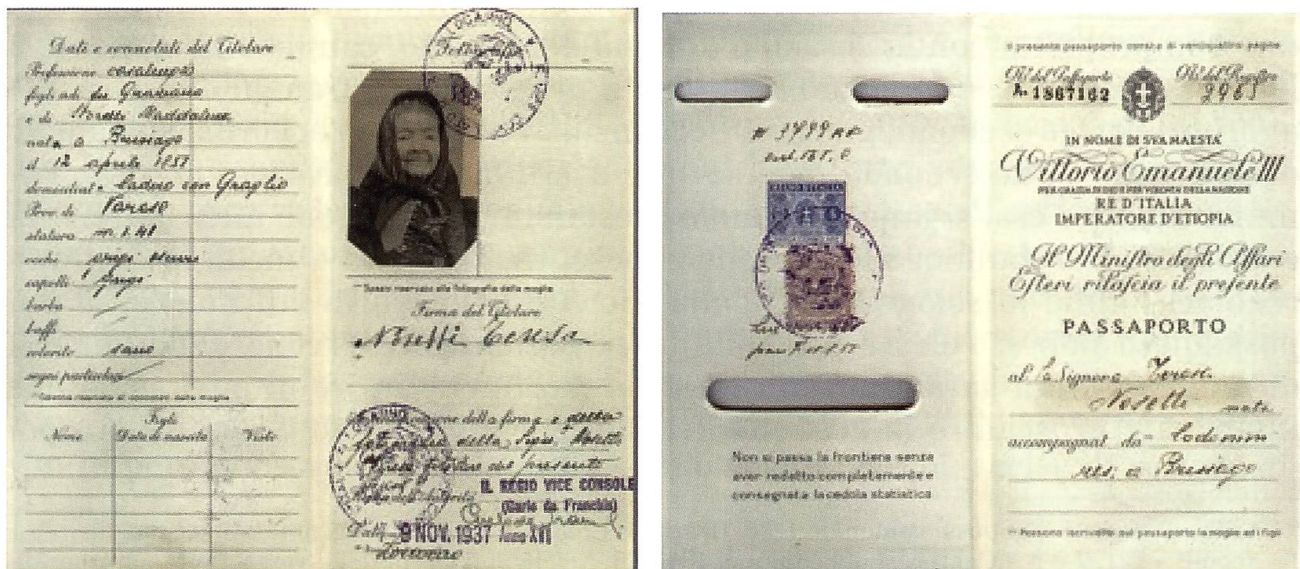 Dati e connotati del Titolare
Professione casalinga
figli
e di Noselli Maddalena
nata a Brusiago
il 12 aprile
domiciliat a Cadero con Graglio
Prov. di Varese
statura m. 1.48
occhi grigi
capelli grigi
barba
baffi
colorito sano
segni particolari
Figli
Nome Data di nascita Visto
LUGANO
Fotografia
Spazio riservato alla fotografia della moglie
Firma del Titolare
Noselli Teresa
LUGANO
della firma e della
fotografia della Sig.ra Noselli
titolare del presente
IL REGIO VICE CONSOLE
(Carlo de Franchis)
Data 9 NOV. 1937 Anno XVI
N 3499
REGNO D'ITALIA
Non si passa la frontiera senza
aver redatto completamente e
consegnata la cedola statistica
Il presente passaporto consta di ventiquattro pagine
N.° del Passaporto N.° del Registro
A. 1867162 2965
IN NOME DI SVA MAESTÀ
Vittorio Emanuele III
PER GRAZIA DI DIO E PER VOLONTÀ DELLA NAZIONE
RE D'ITALIA
IMPERATORE D'ETIOPIA
Il Ministro degli Affari
Esteri rilascia il presente
PASSAPORTO
al la Signora Teresa
Noselli nata
accompagnat da
res. a Brusiago
Persone iscritte sul passaporto la moglie ed i figli